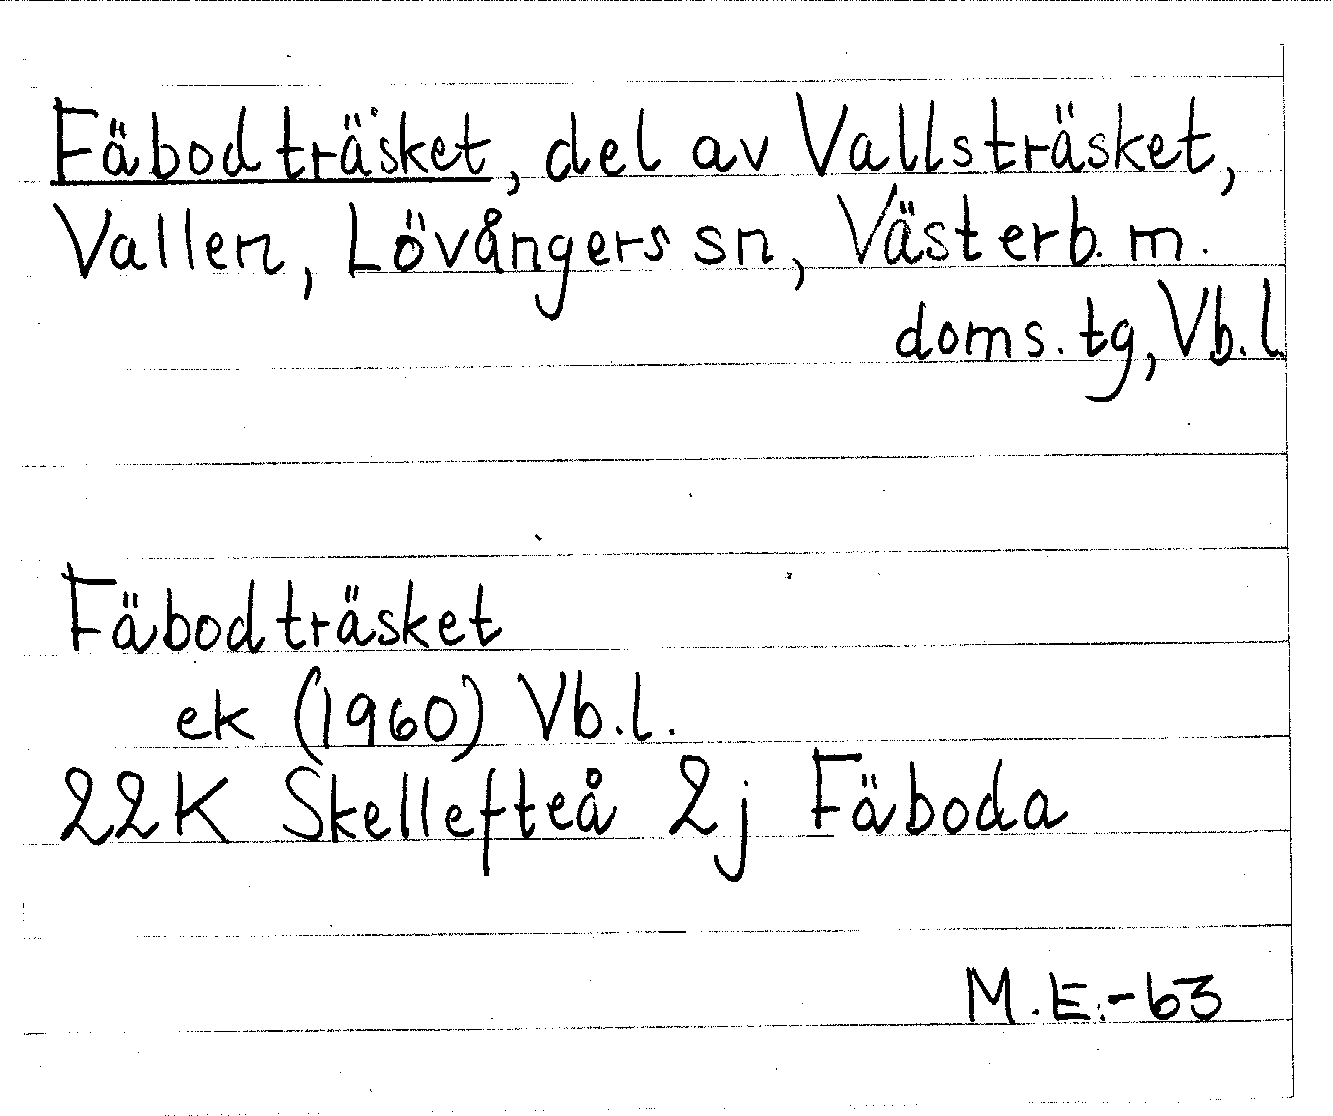 Fäbodträsket, del av Vallsträsket,
Vallen, Lövångers sn, Västerb. m.
doms. tg, Vb.l.
Fäbodträsket
ek (1960) Vb.l.
22K Skellefteå 2j Fäboda
M.E.-63